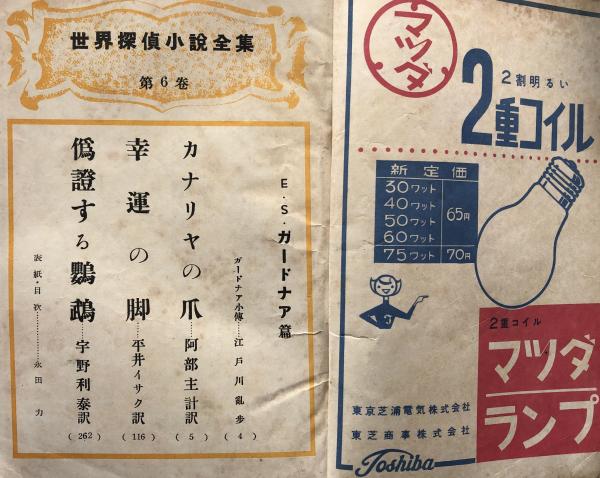 世界探偵小說全集
第6卷
E・S・ガードナア篇
ガードナア小傳…………江戸川亂歩
(4)
カナリヤの爪……阿部主計訳
(5)
幸運の脚……平井イサク訳
(116)
僞證する鸚鵡……宇野利泰訳
(262)
表紙・目次…………永田力
マツダ
2割明るい
2重コイル
新定価
30ワット
40ワット
50ワット
60ワット
65円
75ワット 70円
2重コイル
マツダ
ランプ
東京芝浦電気株式会社
東芝商事株式会社
Toshiba